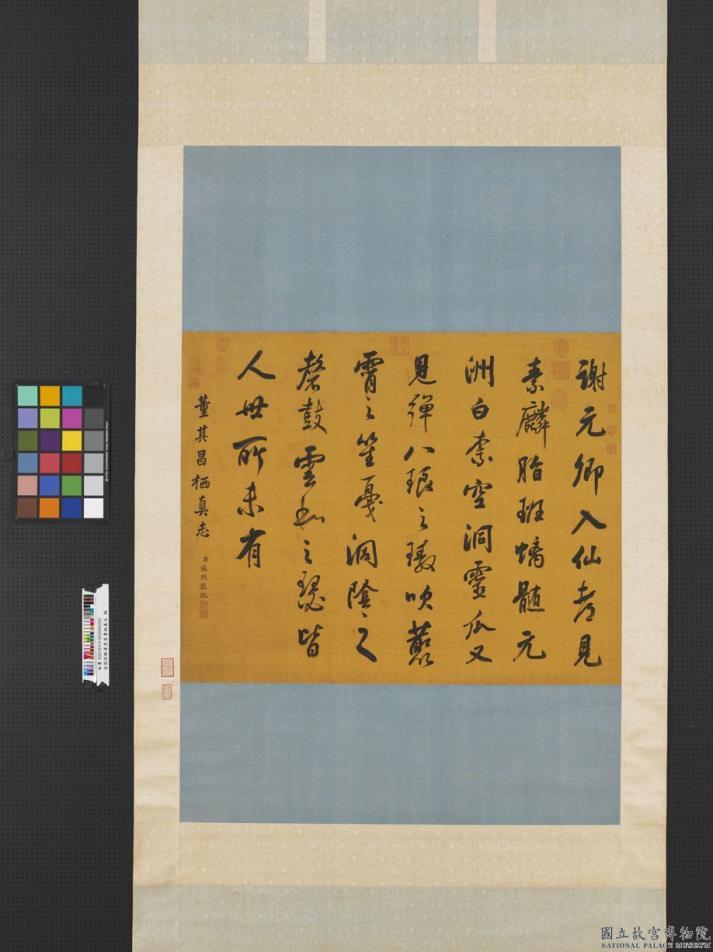 謝元卿入仙者見
素麟脂班螭髓元
洲白柰空洞靈瓜又
見彈八琅之璈吹叢
霄之笙戛洞陰之
磬鼓雲和之瑟皆
人世所未有
董其昌栖真志
國立故宮博物院
NATIONAL PALACE MUSEUM